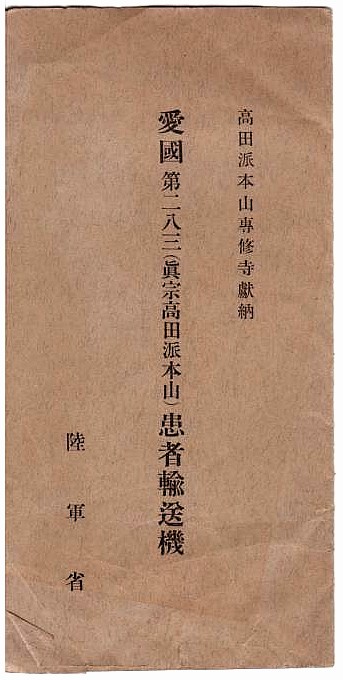 高田派本山專修寺獻納
愛國第二八三(眞宗高田派本山)患者輸送機
陸軍省